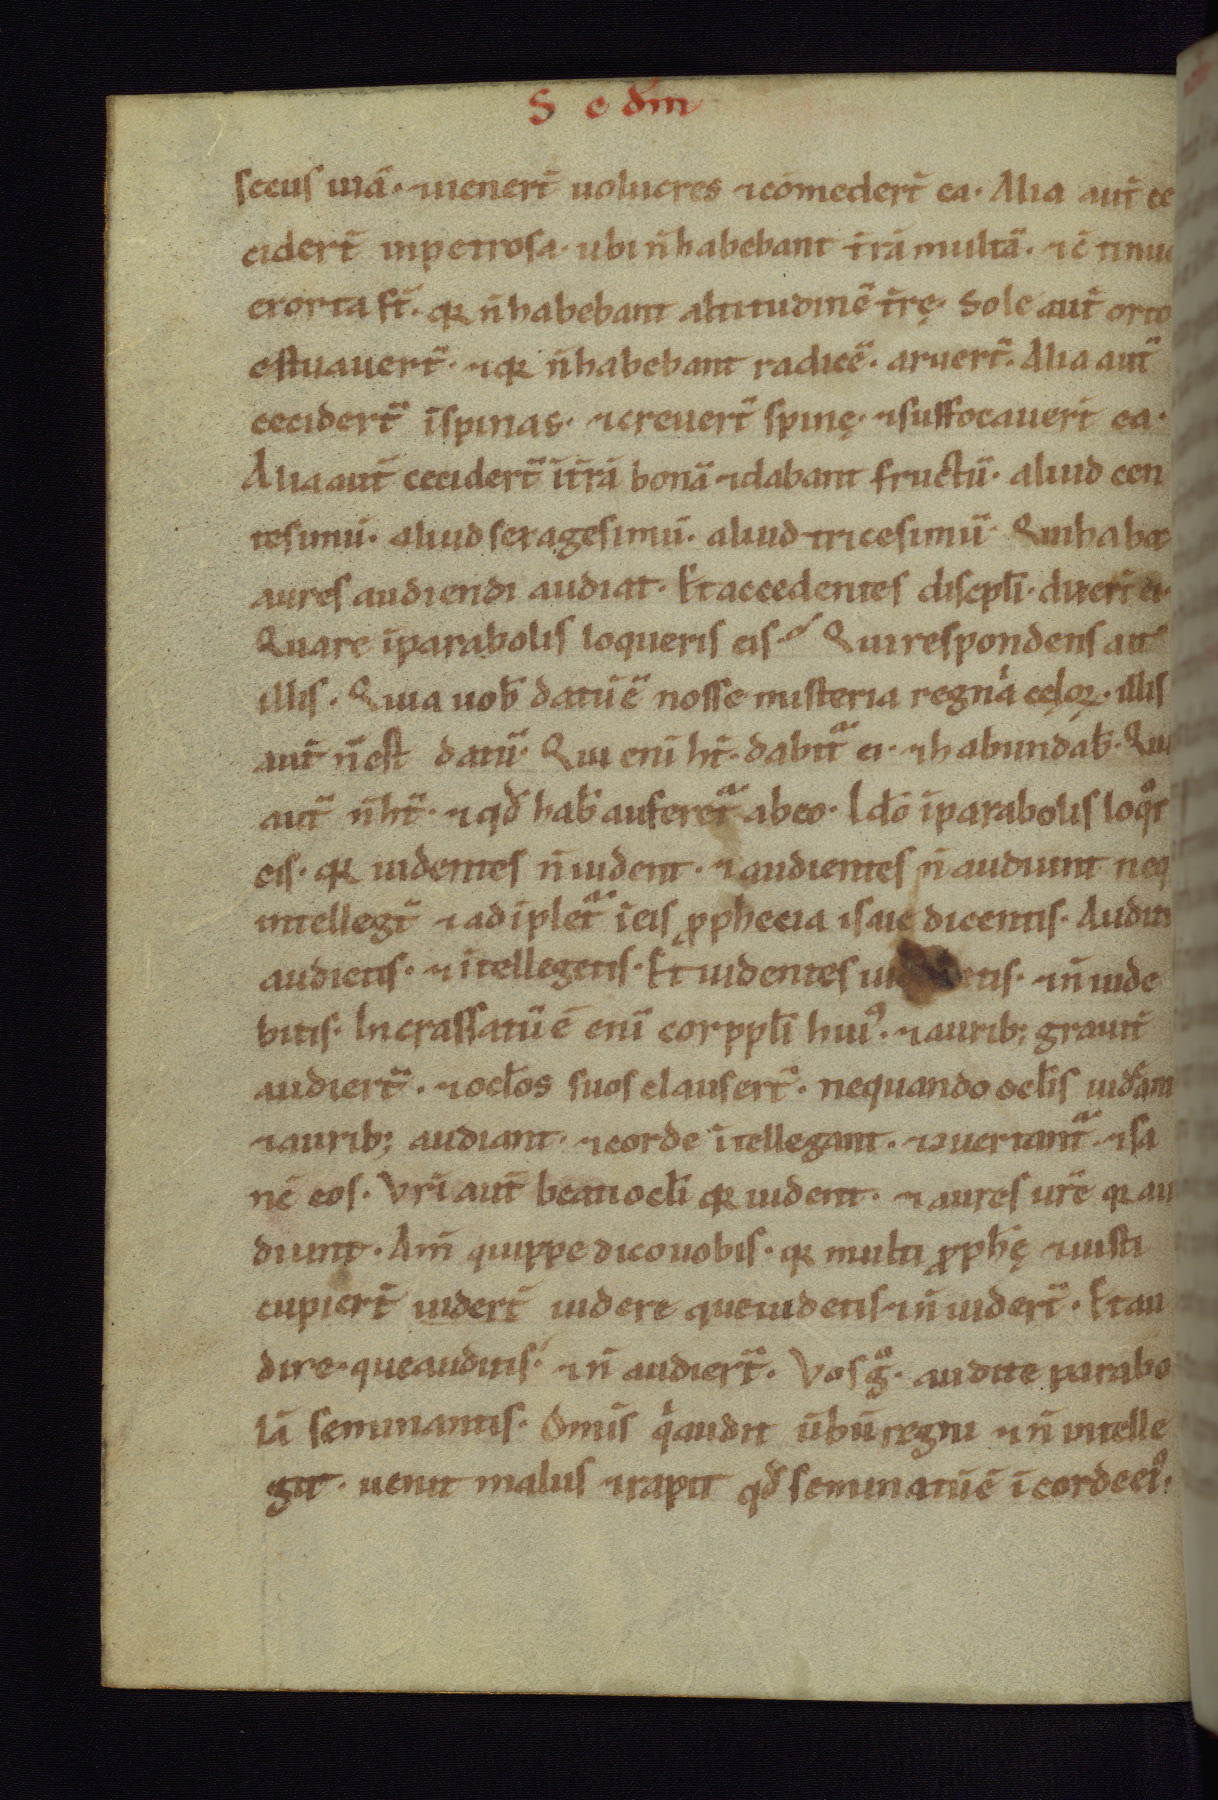 S c dm̄
secus uiā. ⁊uenert̄ uolucres ⁊comedert̄ ea. Alia aut̄ ce
cidert̄ inpetrosa. ubi n̄habebant t̄rā multā. ⁊c̄tinuo
exorta st̄. qꝛ n̄habebant altitudinē t̄rę. Sole aut̄ orto
estuauert̄. ⁊qꝛ n̄habebant radicē. aruert̄. Alia aut̄
cecidert̄ īspinas. ⁊creuert̄ spinę. ⁊suffocauert̄ ea.
Alia aut̄ cecidert̄ īt̄rā bonā ⁊dabant fructū. aliud cen
tesimū. aliud sexagesimū. aliud tricesimū. Qui habet
aures audiendi audiat. Et accedentes discpl̄i. dixert̄ ei.
Quare īparabolis loqueris eis? Qui respondens ait
illis. Quia uob̄ datū ē nosse misteria regna celoꝝ. illis
aut̄ n̄est datū. Qui enī ht̄. dabit̄ ei. ⁊habundab̄. Qui
aut̄ n̄ht̄. ⁊qd̄ hab̄ auferet̄ abeo. Ido īparabolis loqͦr
eis. qꝛ uidentes n̄uident. ⁊audientes n̄audiunt neq
intellegt̄ ⁊adīplet̄ īeis ꝓphecia isaie dicentis. Auditu
audietis. ⁊ītellegetis. Et uidentes ui etis. ⁊n̄uide
bitis. Incrassatū ē enī cor ppl̄i huiꝰ. ⁊auribꝫ grauit̄
audiert̄. ⁊ocl̄os suos clausert̄. nequando ocl̄is uideam
⁊auribꝫ audiant. ⁊corde ītellegant. ⁊ꝯuertant̄. ⁊sa
nē eos. Vr̄i aut̄ beati ocl̄i qꝛ uident. ⁊aures ur̄e qꝛ au
diunt. Am̄ quippe dico uobis. qꝛ multi ꝓph̄ę ⁊iusti
cupiert̄ uidert̄ uidere que uidetis ⁊n̄uidert̄. Et au
dire. que auditis. ⁊n̄ audiert̄. Vos gͦ. audite parabo
lā seminantis. Omīs qͥaudit ūbū regni ⁊n̄ intelle
git. uenit malus ⁊rapit qd̄ seminatū ē īcorde eiꝰ.